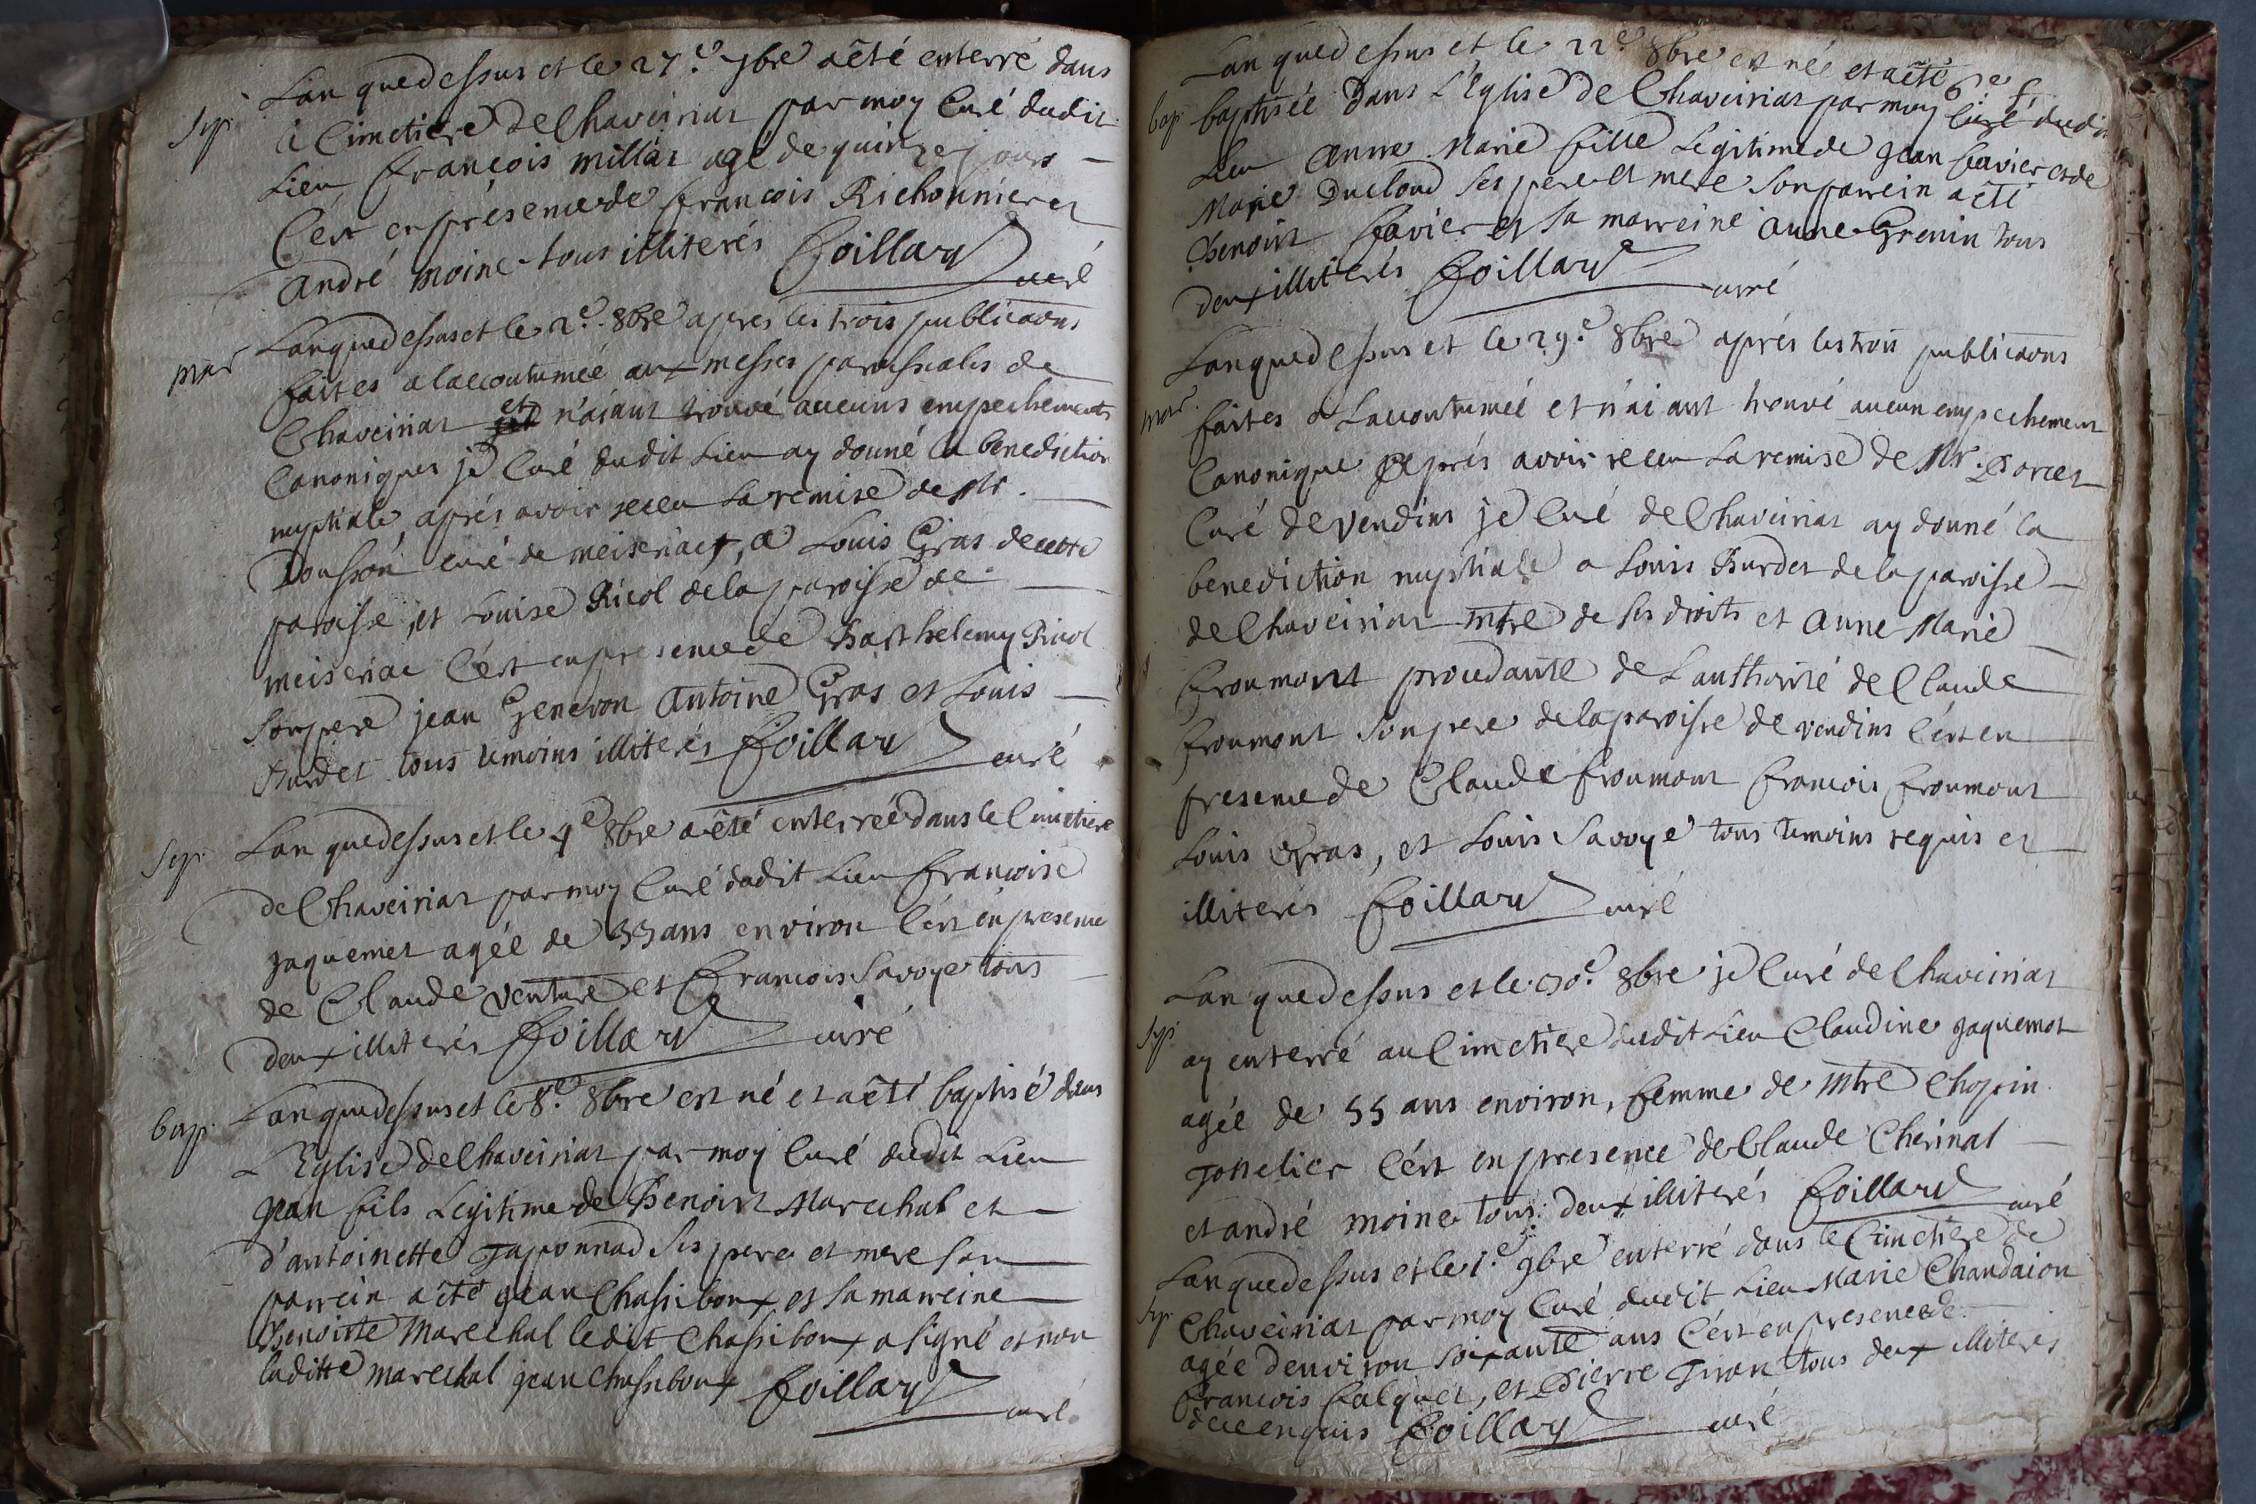 Lan que dessus et le 27.e 7bre a êté enterré dans
Sep. le Cimetiere de Chaveiriat par moy Curé dudit
Lieu, François millat agé de quinze jours
C'ést en presence de francois Richonnier et
andré moine tous illiterés Foillard curé
Lan que dessus et le 2.e 8bre apres les trois publicaons
mar faites a laccoutumée aux messes paroissiales de
Chaveiriat et n'aiant trouvé aucuns empechements
Canoniques je Curé dudit Lieu ay donné la benediction
nuptiale, aprés avoir receu la remise de Mr.
curé de meiseriact, a Louis Gras de cette
paroisse, et Louise Ricol de la paroisse de
meiseriac C'ést en presence de Barthelemy Ricol
son pere jean Genevon Antoine Gras et Louis
Burdet tous temoins illiterés Foillard curé
Sep. Lan que dessus et le 4.e 8bre a êté enterrée dans le Cimetiere
de Chaveiriat par moy Curé dudit Lieu Francoise
jaquemet agée de 55 ans environ C'ést en presence
de Claude venture et Francois Savoye tous
deux illiterés Foillard curé
bap. Lan que dessus et le 8.e 8bre est né et a êté baptisé dans
L'Eglise de Chaveiriat par moy Curé dudit Lieu
jean fils Legitime de Benoist Marechal et
d'antoinette Taponnad ses pere et mere son
parrein a êté jean Chassiboux et sa marreine
Benoiste Marechal ledit Chassiboux a signé et non
laditte marechal jean Chassiboux Foillard curé
Lan que dessus et le 22.e 8bre est née et a êté
bap. baptisée Dans L'Eglise de Chaveiriat par moy Curé dudit
Lieu anne Marie fille Legitime de jean favier et de
Marie Ducloud ses pere et mere son parrein a êté
Benoist favier et sa marreine anne Grenin tous
deux illiterés Foillard curé
Lan que dessus et le 29.e 8bre aprés les trois publicaons
mar. faites a Laccoutumée et n'aiant trouvé aucun empechement
Canonique aprés avoir receu la remise de Mr.
Curé de vendins je Curé de Chaveiriat ay donné la
benediction nuptiale a Louis Burdet de la paroisse
de Chaveiriat mtre de ses droits et anne Marie
froumont de L'authorité de Claude
froumont son pere de la paroisse de vendins C'ést en
presence de Claude froumont francois froumont
Louis Gras, et Louis Savoye tous temoins requis et
illiterés Foillard curé
Lan que dessus et le 30.e 8bre je Curé de Chaveiriat
Sep. ay enterré au Cimetiere dudit Lieu Claudine jaquemot
agée de 55 ans environ, femme de mtre Chopin
Tonnelier C'ést en presence de Claude Cherinal
et andré moine tous deux illiterés Foillard curé
Lan que dessus et le 1.e 9bre enterré dans le Cimetiere de
Sep. Chaveiriat par moy Curé dudit Lieu Marie Chandaion
agée d'environ soixante ans C'ést en presence de
Francois falquet, et Pierre tous deux illiterés
de ce enquis Foillard curé